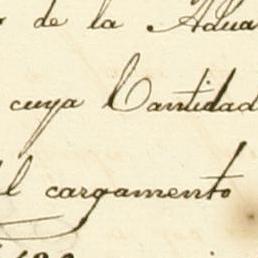 de la Adua
cuya Cantidad
el cargamento